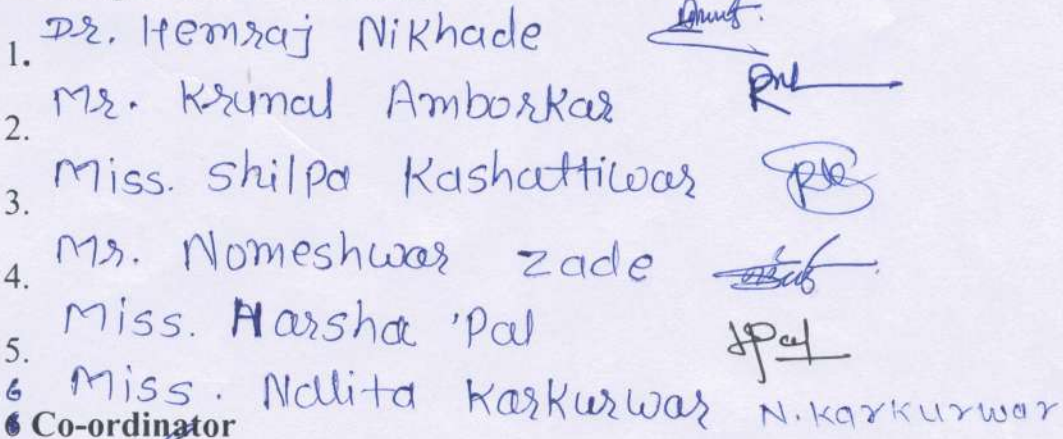 1. Dr. Hemraj Nikhade
2. Mr. Krunal Amborkar
3. Miss. Shilpa Kashattiwar
4. Mr. Nomeshwar Zade
5. Miss. Harsha Pal HPal
6 Miss. Nallita Karkurwar N. Karkurwar
6 Co-ordinator